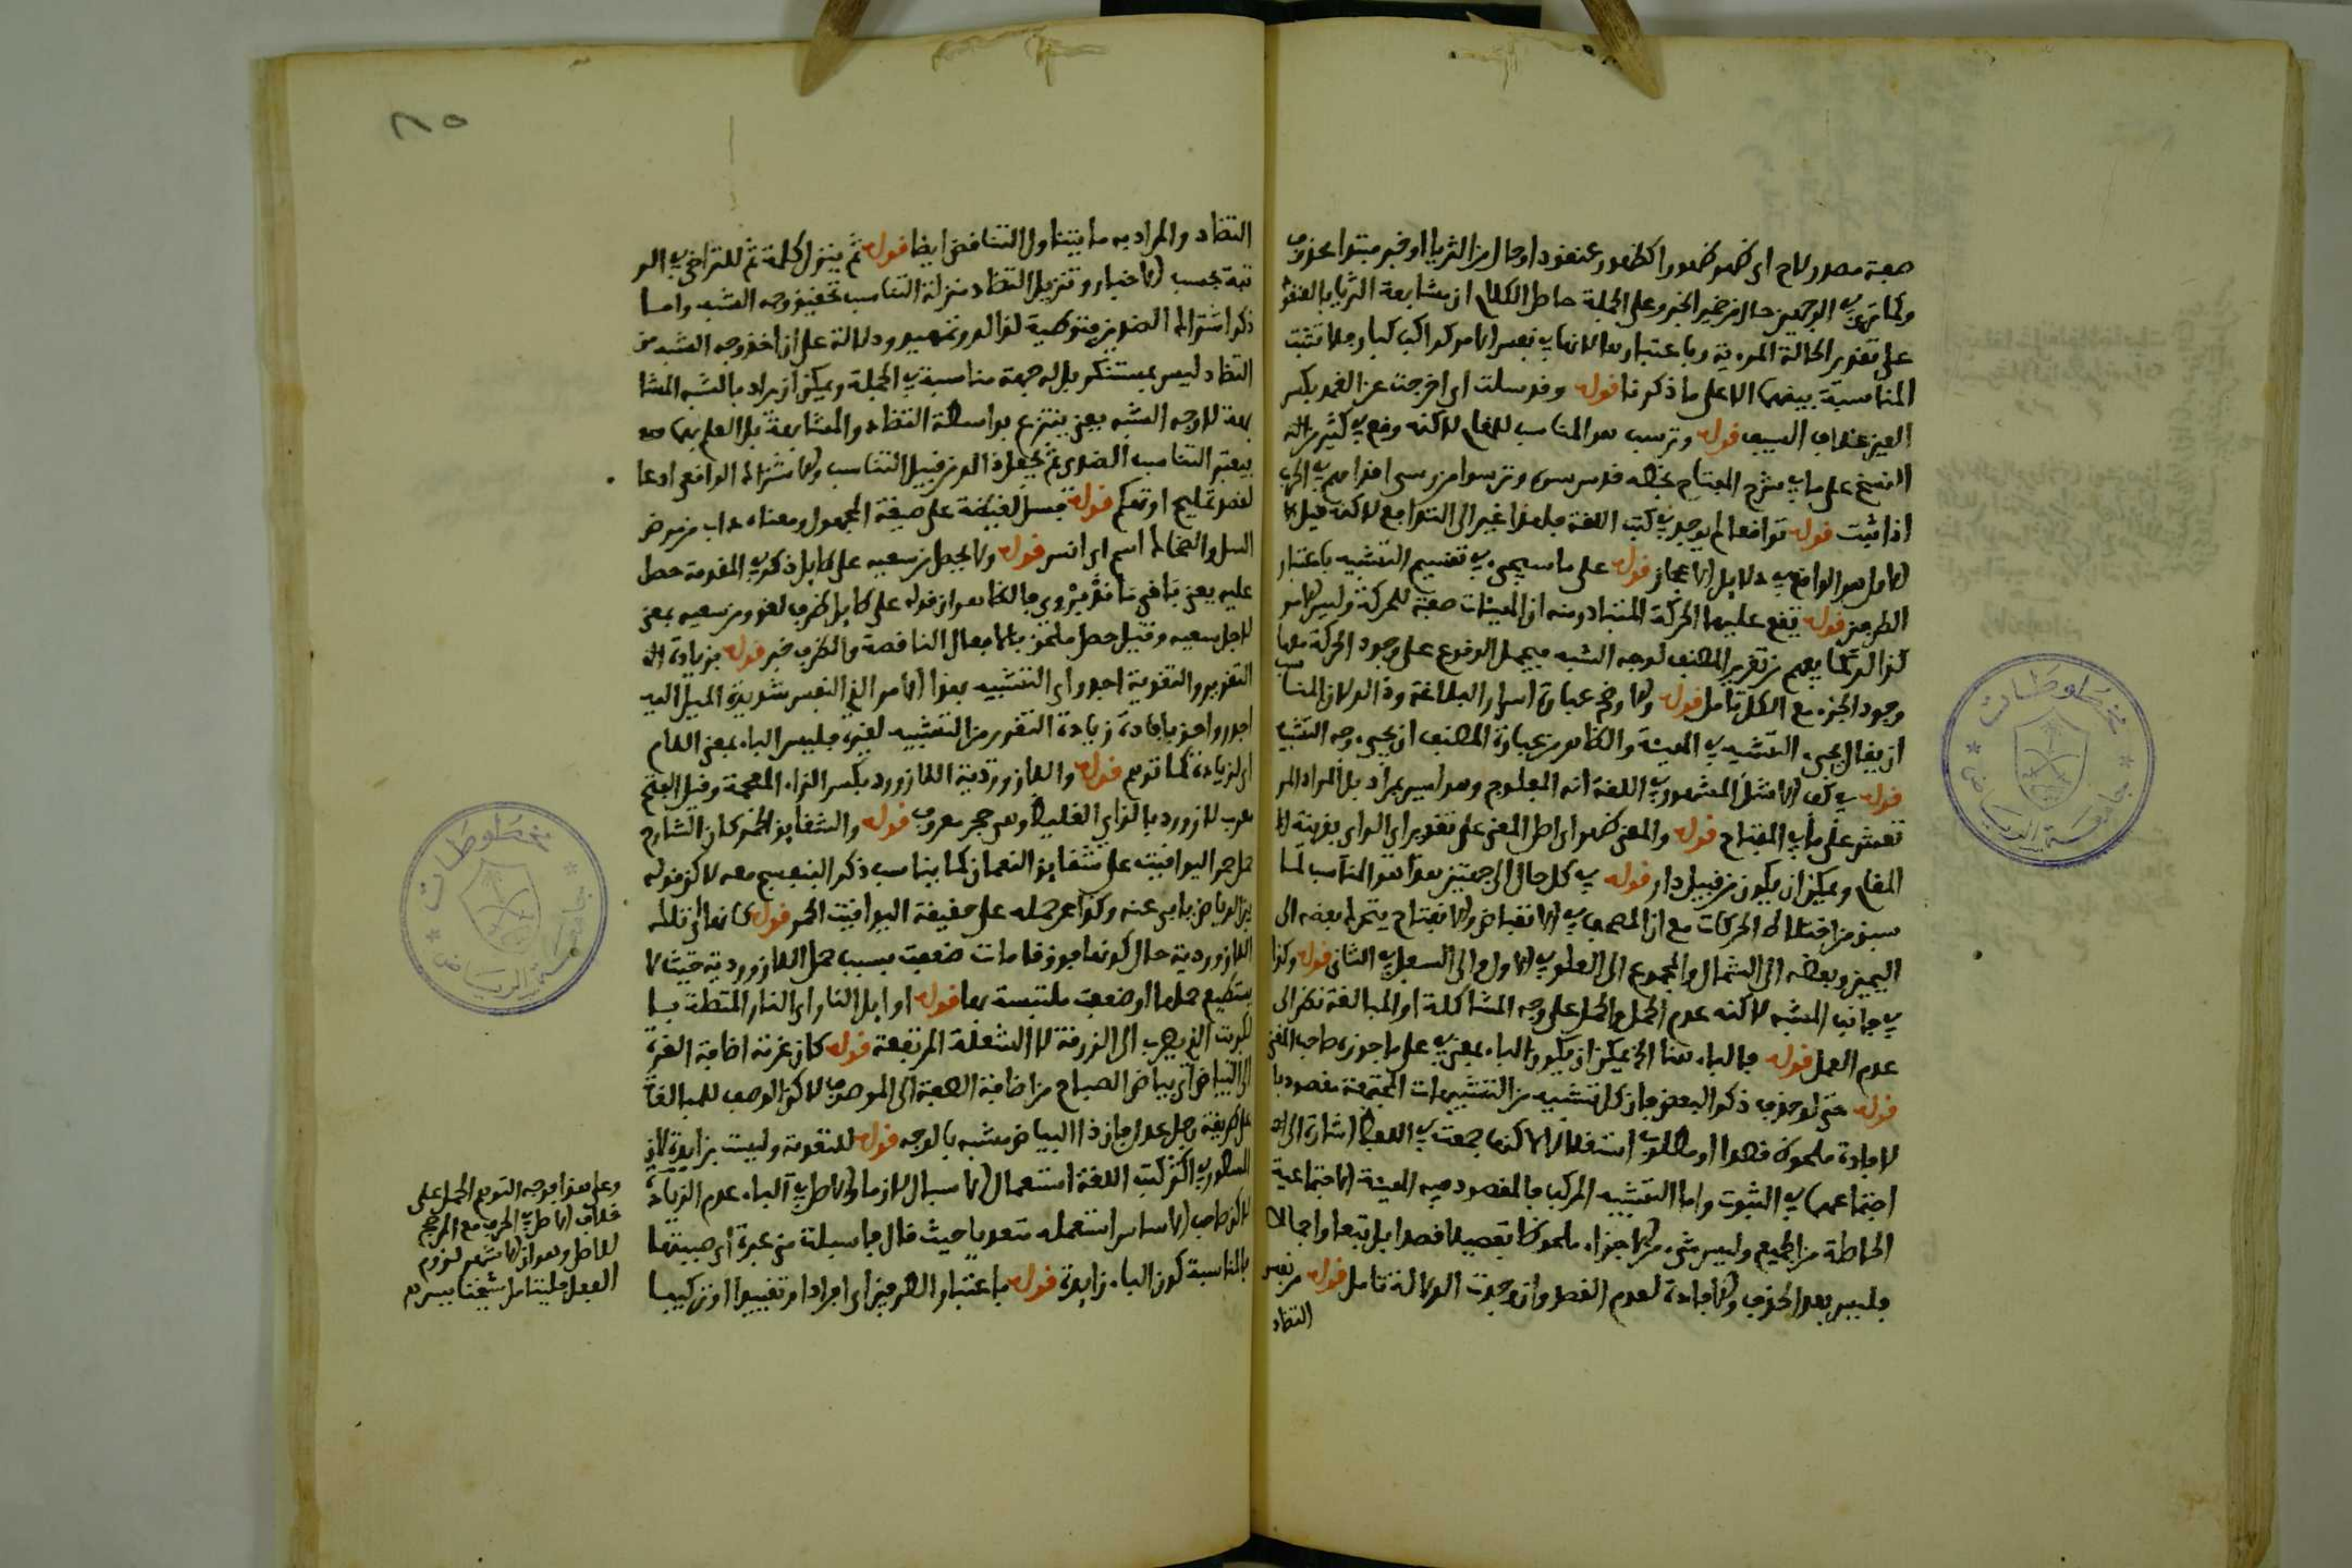 صفة مصدر لاح اي ظهر ظهورا كظهور عنقود او حال من الثريا او خبر مبتدا محذوف
وكما ترى في الوجهين حال من ضمير الخبر وعلى الجملة حاصل الكلام ان مشابهة الثريا بالعنقود
على تقدير الحالة المردية وباعتبارها لانها في نفس الامر كواكب كبار فلا تثبت
المناسبة بينهما الا على ما ذكرنا قوله وقد سلت اي اخرجت عن الغمد بكسر
الغين غلاف السيف قوله وترسب هو المناسب للمقام لاكنه وقع في كثير من
النسخ على ما في شرح المفتاح بخطه قدس سره وترسوا من رسى اقدامهم في الحرب
اذا ثبت قوله تواقعا لم يوجد في كتب اللغة فلعلها غير الى التدافع لاكنه قيل
الاول هو الواقع في دلايل الاعجاز قوله على ما سيجيء في تقسيم التشبيه باعتبار
الطرفين قوله يقع عليها الحركة المتبادر منه ان الهيئات صفة للحركة وليس الامر
كذالك كما يفهم من تقرير المصنف لوجه الشبه فيحمل الوقوع على وجود الحركة معها
وجود الجزء مع الكل تامل قوله والاوضح عبارة اسرار البلاغة وذالك لان المناسب
ان يقال يجيء التشبيه في الهيئة والظاهر من عبارة المصنف ان يجيء وجه التشبيه
قوله في كف الاشل المشهور في اللغة انه المفلوج وهو ليس بمراد بل المراد المر
تعش على ما في المفتاح قوله والمعنى ظهر اي اصل المعنى على تقدير اي الراي بقرينة
المقام ويمكن ان يكون من قبيل دار قوله في كل حال الى جهتين هذا هو المناسب لما
سبق من اختلاط الحركات مع ان المصحف في الانقباض والانفتاح يتحرك بعضه الى
اليمين وبعضه الى الشمال والمجموع الى العلو في الاول والى السفل في الثاني قوله وكذا
في جانب المشبه لاكنه عدم الحمل والحمل على وجه المشاكلة او المبالغة نظر الى
عدم العمل قوله فالباء هنا الخ يمكن ان يكون الباء بمعنى في على ما جوزه صاحب المغني
قوله حتى لو حذف ذكر البعض فان كل تشبيه من التشبيهات المجتمعة مقصود با
لافادة ملحوظ قصدا ومطلوب استقلالا لاكنها جمعت في اللفظ اشارة الى
اجتماعهما في الثبوت واما التشبيه المركب فالمقصود فيه الهيئة الاجتماعية
الحاصلة من الجميع وليس شيء من الاجزاء ملحوظا تفصيلا قصدا بل تبعا واجمالا
فليس بعد الحذف والافادة لعدم القصد وان وجدت الدلالة تامل قوله من نفس
التضاد
٢١٥
التضاد والمراد به ما يتناول التناقض ايضا قوله ثم ينزل كلمة ثم للتراخي في الر
تبة بحسب الاخبار وتنزيل التضاد منزلة التناسب تحقيق وجه الشبه واما
ذكر اشتراك الضدين فتوطية لذالك وتمهيد ودلالة على ان اخذ وجه الشبه من
التضاد ليس بمستنكر بل له جهة مناسبة في الجملة ويمكن ان يراد بالشبه المشا
بهة لا وجه الشبه يعني ينتزع بواسطة التضاد والمشابهة بل العلم بها
فيعتبر التناسب الضدي ثم يجعل ذالك من قبيل التناسب والاشتراك الواقعي ادعا
لقصد تمليح او تهكم قوله فسل لغيظه على صيغة المجهول ومعناه ذاب من مرض
السل والضحاك اسم اي انس قوله ولا يحصل من سعيه على طايل ذكر في المقدمة حصل
عليه يعني
لاجل سعيه وقيل حصل ملحق بالافعال الناقصة والظرف خبر قوله بزيادة
التقرير والتقوية اجدر اي التشبيه بهذا الامر الخ النفس شديدة الميل اليه
اجدر واحق بافادة زيادة التقرير من التشبيه لغيره فليس الباء بمعنى اللام
اي لزيادة كما توهم قوله واللازوردية اللازورد بكسر الزاء المعجمة وقيل الفتح
معرب لازورد بالزاي الغليظ وهي حجر معروف قوله والشقايق الحمر كان الشارح
حمل حمر اليواقيت على شقايق النعمان كما يناسب ذكر البنفسج معه لاكن قوله
بين الرياض يابى عنه وكذا حمله على حقيقة اليواقيت الحمر قوله كانها اي تلك
اللازوردية حال كونها فوق قامات ضعفت بسبب حمل اللازوردية حيث لا
يستطيع حملها او ضعفت ملتبسة بها قوله اوايل النار اي النار المتصلة با
لكبريت الذي يضرب الى الزرقة لا الشعلة المرتفعة قوله كان غرته اضافة الغرة
الى البياض اي بياض الصباح من اضافة الصفة الى الموصوف لاكن الوصف للمبالغة
على طريقة رجل عدل فان ذا البياض مشبه بالوجه قوله للتقوية وليست بزايدة لان
المسطور في اكثر كتب اللغة استعمال الاسبال لازما والاصل في الباء عدم الزيادة
لاكن صاحب الاساس استعمله متعديا حيث قال فاسبلت عبرة اي صبيتها
بالمناسبة كون الباء زايدة قوله باعتبار الطرفين اي افرادا وتقييدا او تركيبا
وعلى هذا فوجه التوهم الحمل على
خلاف الاصل في الحرف مع المرجح
للاصل وهو ان الاشهر لزوم
الفعل فليتامل شيخنا بيرم
مخطوطات
جامعة الرياض
مخطوطات
جامعة الرياض